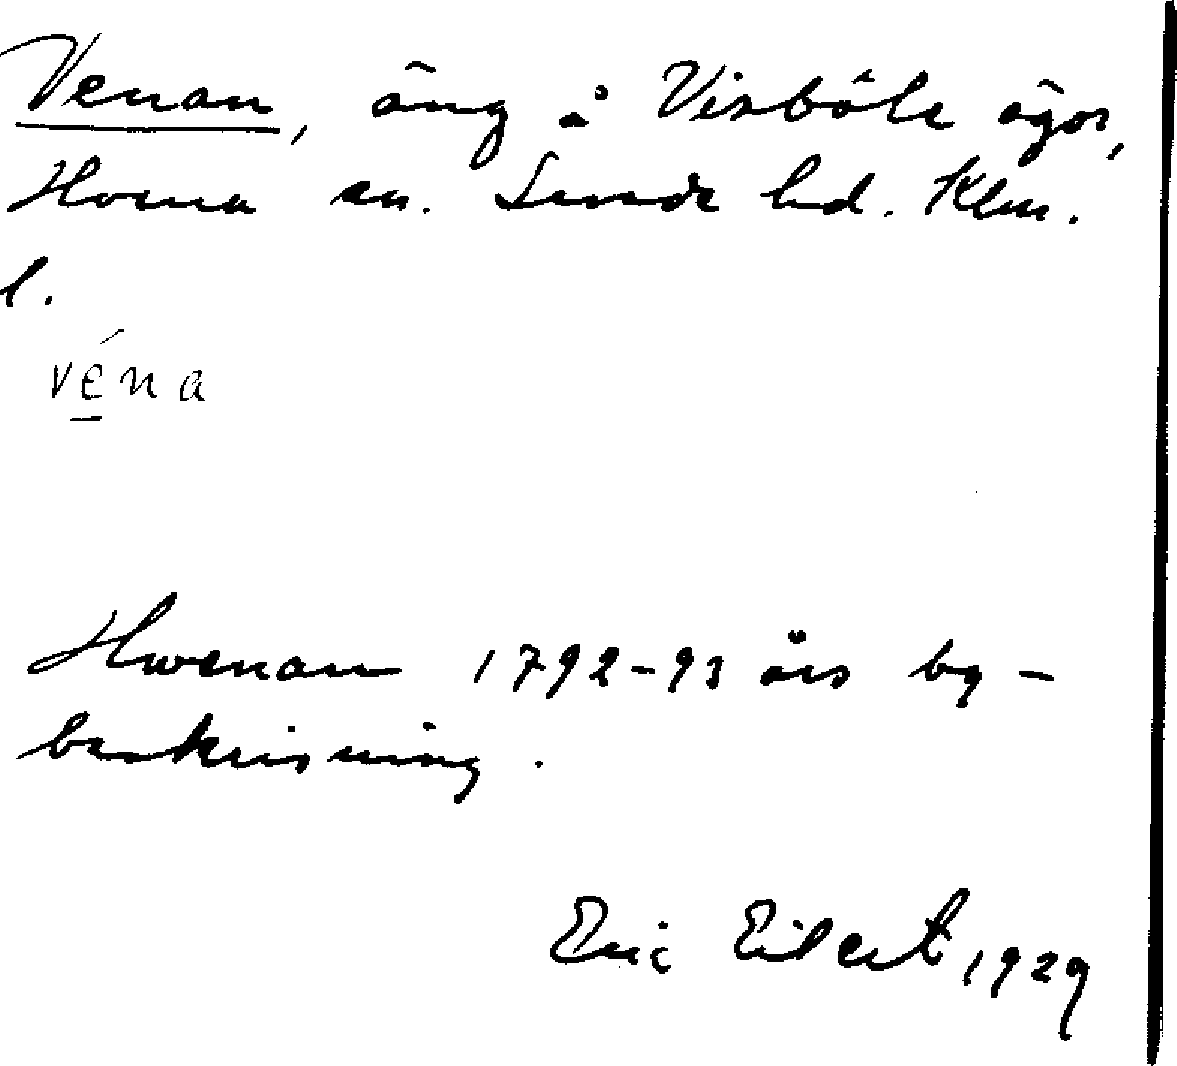 Venan, äng å Visböle ägor,
Hova sn. Sunds hd. Klm.
l.
véna
Hwenan 1792-93 års by-
beskrivning.
Eric Eilert 1929